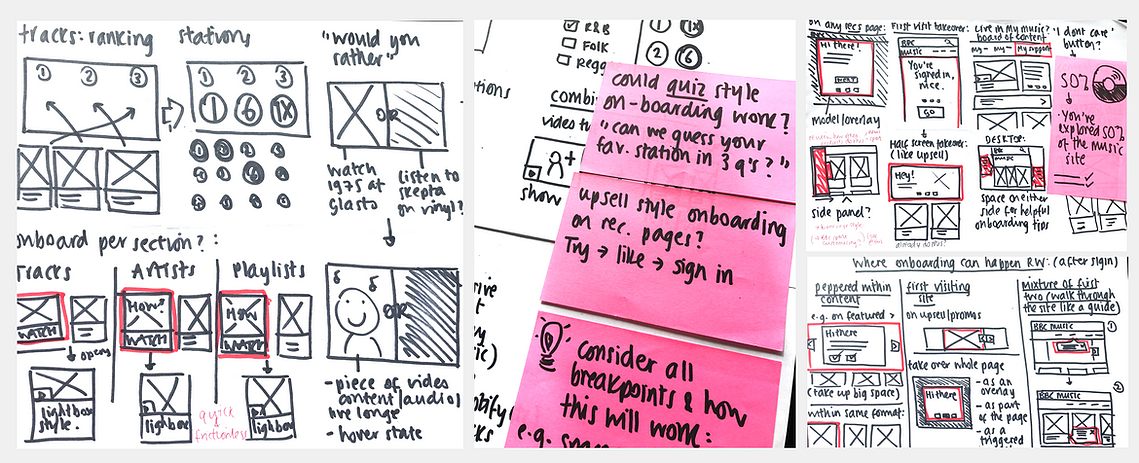 tracks: ranking
stations
"would you
rather"
1 2 3
1 2 3
1 6 1X
OR
watch
1975 at
glasto
listen to
skepta
on vinyl?
onboard per section?:
Tracks
Artists
Playlists
WATCH
How?
WATCH
How
WATCH
opens
lightbox
style.
lightbox
quick
&
frictionless
lightbox
OR
- piece of video
content/audio/
live lounge
- hover state
R&B
Folk
Regg
1 1X
2 6
combi
video t
show
could quiz style
on-boarding work?
"can we guess your
fav. station in 3 q's?"
upsell style onboarding
on rec. pages?
Try → like → sign in
consider all
breakpoints & how
this will work:
e.g.
on any recs page:
Hi there!
NEXT
modal/overlay
First visit takeover:
BBC
music
You're
signed in,
nice.
GO
Live in My music?
board of content
my - my - My support
"I dont care"
button?
50%
- You've
explored 50%
of the music
site
side panel?
Half screen takeover:
(like upsell)
Hey!
DESKTOP:
BBC
music
space on either
side for helpful
onboarding tips
Where onboarding can happen RN: (after sign in)
peppered within
content
e.g. on featured >
Hi there
(take up big space)
within same format:
first visiting
site
on upsell/promos
take over whole page
Hi there
- as an
overlay
- as part of
the page
- as a
triggered
mixture of first
two (walk through
the site like a guide)
BBC music
1
2
BBC MUSIC